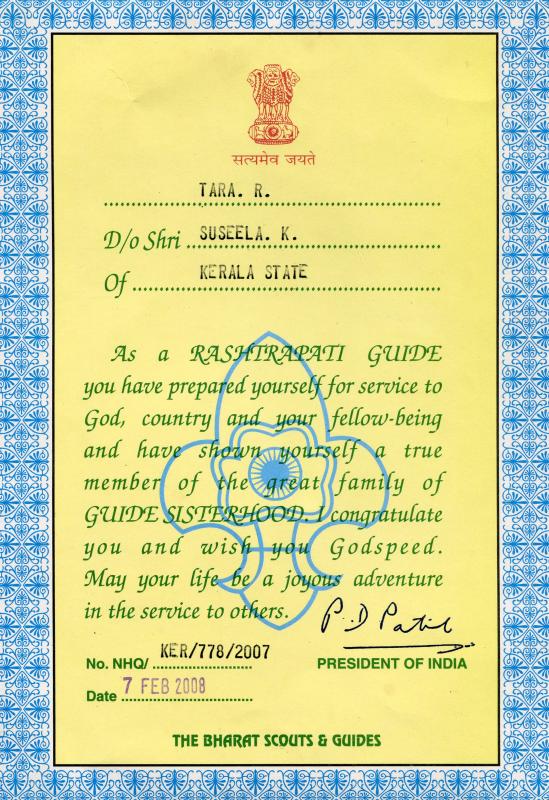 सत्यमेव जयते
TARA. R.
D/o Shri SUSEELA. K.
Of KERALA STATE
As a RASHTRAPATI GUIDE
you have prepared yourself for service to
God, country and your fellow-being
and have shown yourself a true
member of the great family of
GUIDE SISTERHOOD. I congratulate
you and wish you Godspeed.
May your life be a joyous adventure
in the service to others.
P. D Patil
No. NHQ/ KER/778/2007 PRESIDENT OF INDIA
Date 7 FEB 2008
THE BHARAT SCOUTS & GUIDES